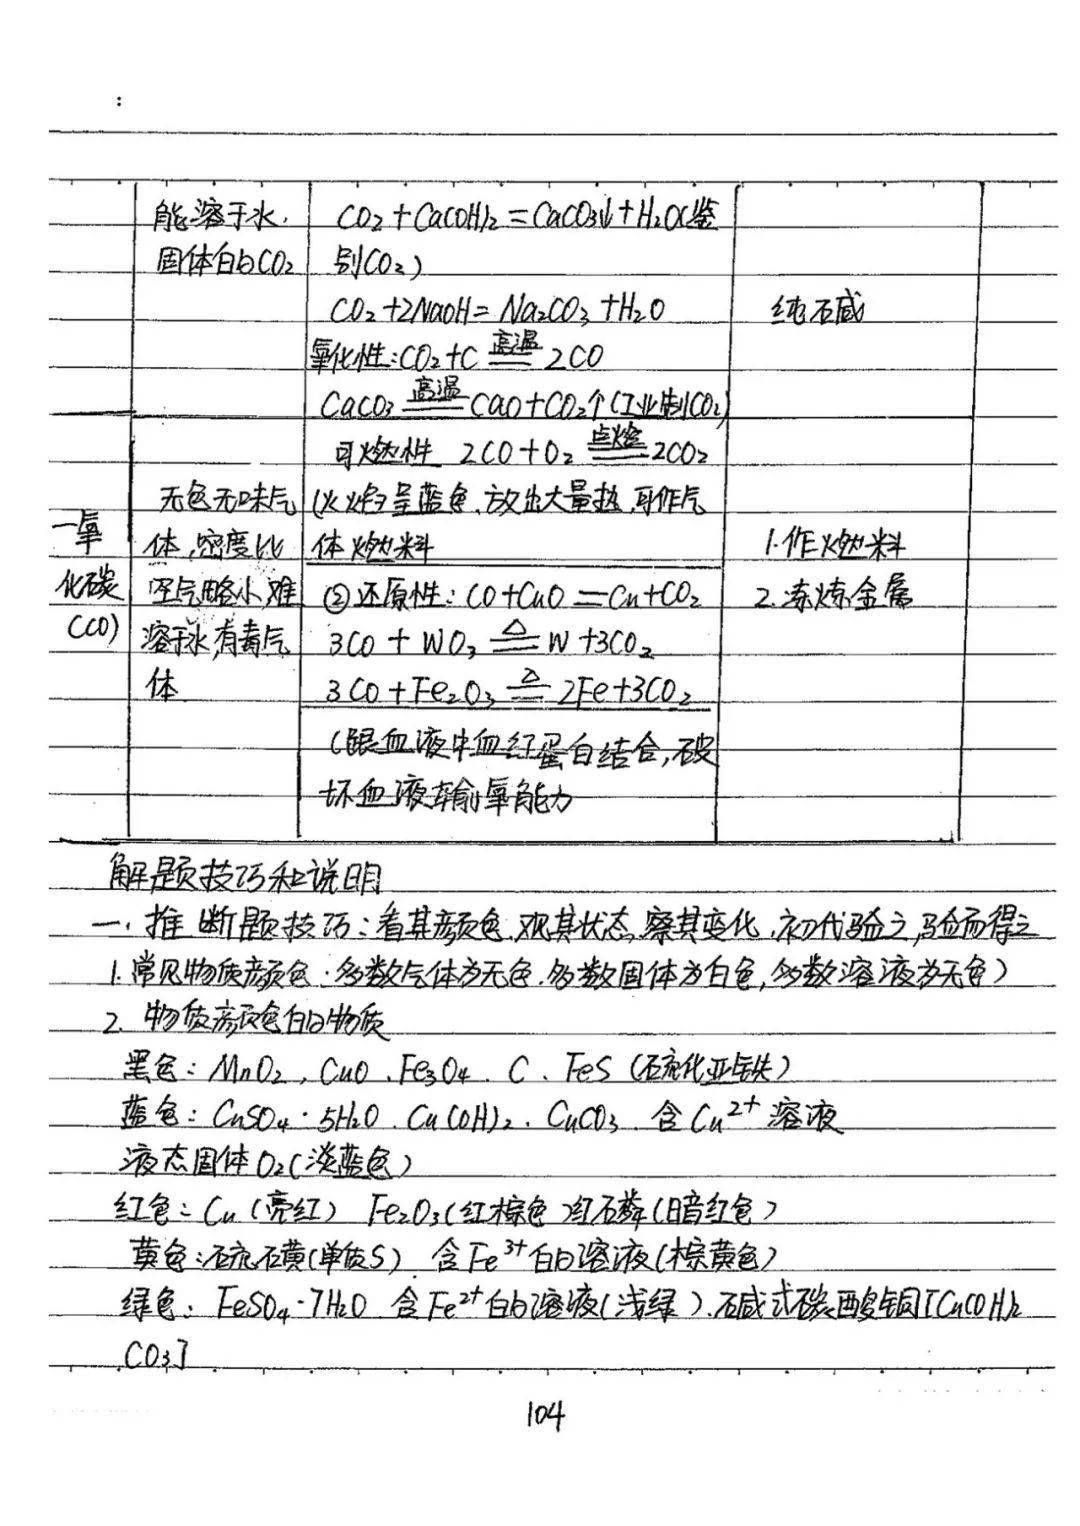 :
能溶于水. CO₂+Ca(OH)₂=CaCO₃↓+H₂O(鉴
固体的CO₂ 别CO₂)
CO₂+2NaOH=Na₂CO₃+H₂O 纯碱
氧化性:CO₂+C 高温 2CO
CaCO₃ 高温 CaO+CO₂↑(工业制CO₂)
可燃性 2CO+O₂ 点燃 2CO₂
无色无味气 (火焰呈蓝色.放出大量热,可作气
一氧 体,密度比 体燃料 1.作燃料
化碳 空气略小,难 ②还原性:CO+CuO=Cu+CO₂ 2.冻炼金属
(CO) 溶于水,有毒气 3CO+WO₃ △ W+3CO₂
体 3CO+Fe₂O₃ △ 2Fe+3CO₂
(跟血液中血红蛋白结合,破
坏血液输氧能力
解题技巧和说明
一.推断题技巧:看其颜色.观其状态,察其变化.初代验之,验而得之
1.常见物质颜色.多数气体为无色.多数固体为白色,多数溶液为无色)
2.物质颜色的物质
黑色:MnO₂,CuO.Fe₃O₄.C.FeS(硫化亚铁)
蓝色:CuSO₄·5H₂O.Cu(OH)₂.CuCO₃.含Cu²⁺溶液
液态固体O₂(淡蓝色)
红色:Cu(亮红) Fe₂O₃(红棕色)红磷(暗红色)
黄色:硫磺(单质S) 含Fe³⁺的溶液(棕黄色)
绿色:FeSO₄·7H₂O 含Fe²⁺的溶液(浅绿).碱式碳酸铜[Cu(OH)₂
CO₃]
104